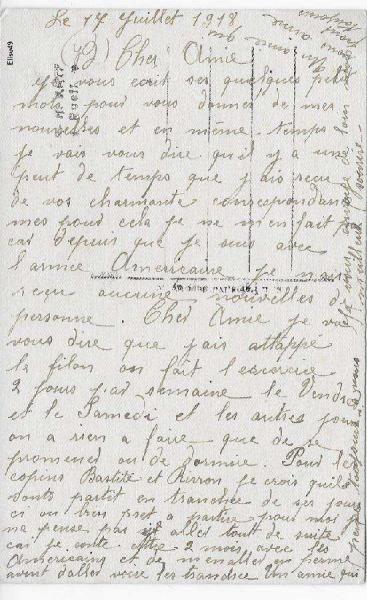 Le 17 Juillet 1918
Cher Amie
Je vous ecrit ses quelques petit
mots pour vous donner de mes
nouvelles et en même temps
je vais vous dire qu'il y a un
peut de temps que j'ais recu
de vos charmante correspondan
mes pour cela je ne m'en fait p
car depuis que je suis avec
l'armée Américaine je n'ai
recu aucune nouvelles de
personne. Cher Amie je vai
vous dire que j'ais attappé
le filon on fait l'exercice
2 jours par semaine le Vendre
et le Samedi et les autres jours
on a rien a faire que de se
promener ou de dormir. Pour les
copins Bastité et Pirron je crois qu'ils
vonts partit en tranchée de ses jours
ci on très pret a partir pour moi je
ne pense pas y aller tout de suite
car je reste 2 mois avec les
Américains et de m'en aller en perme
avant d'aller voire les tranchée Un amie qui
pense toujours a vous
Elise49